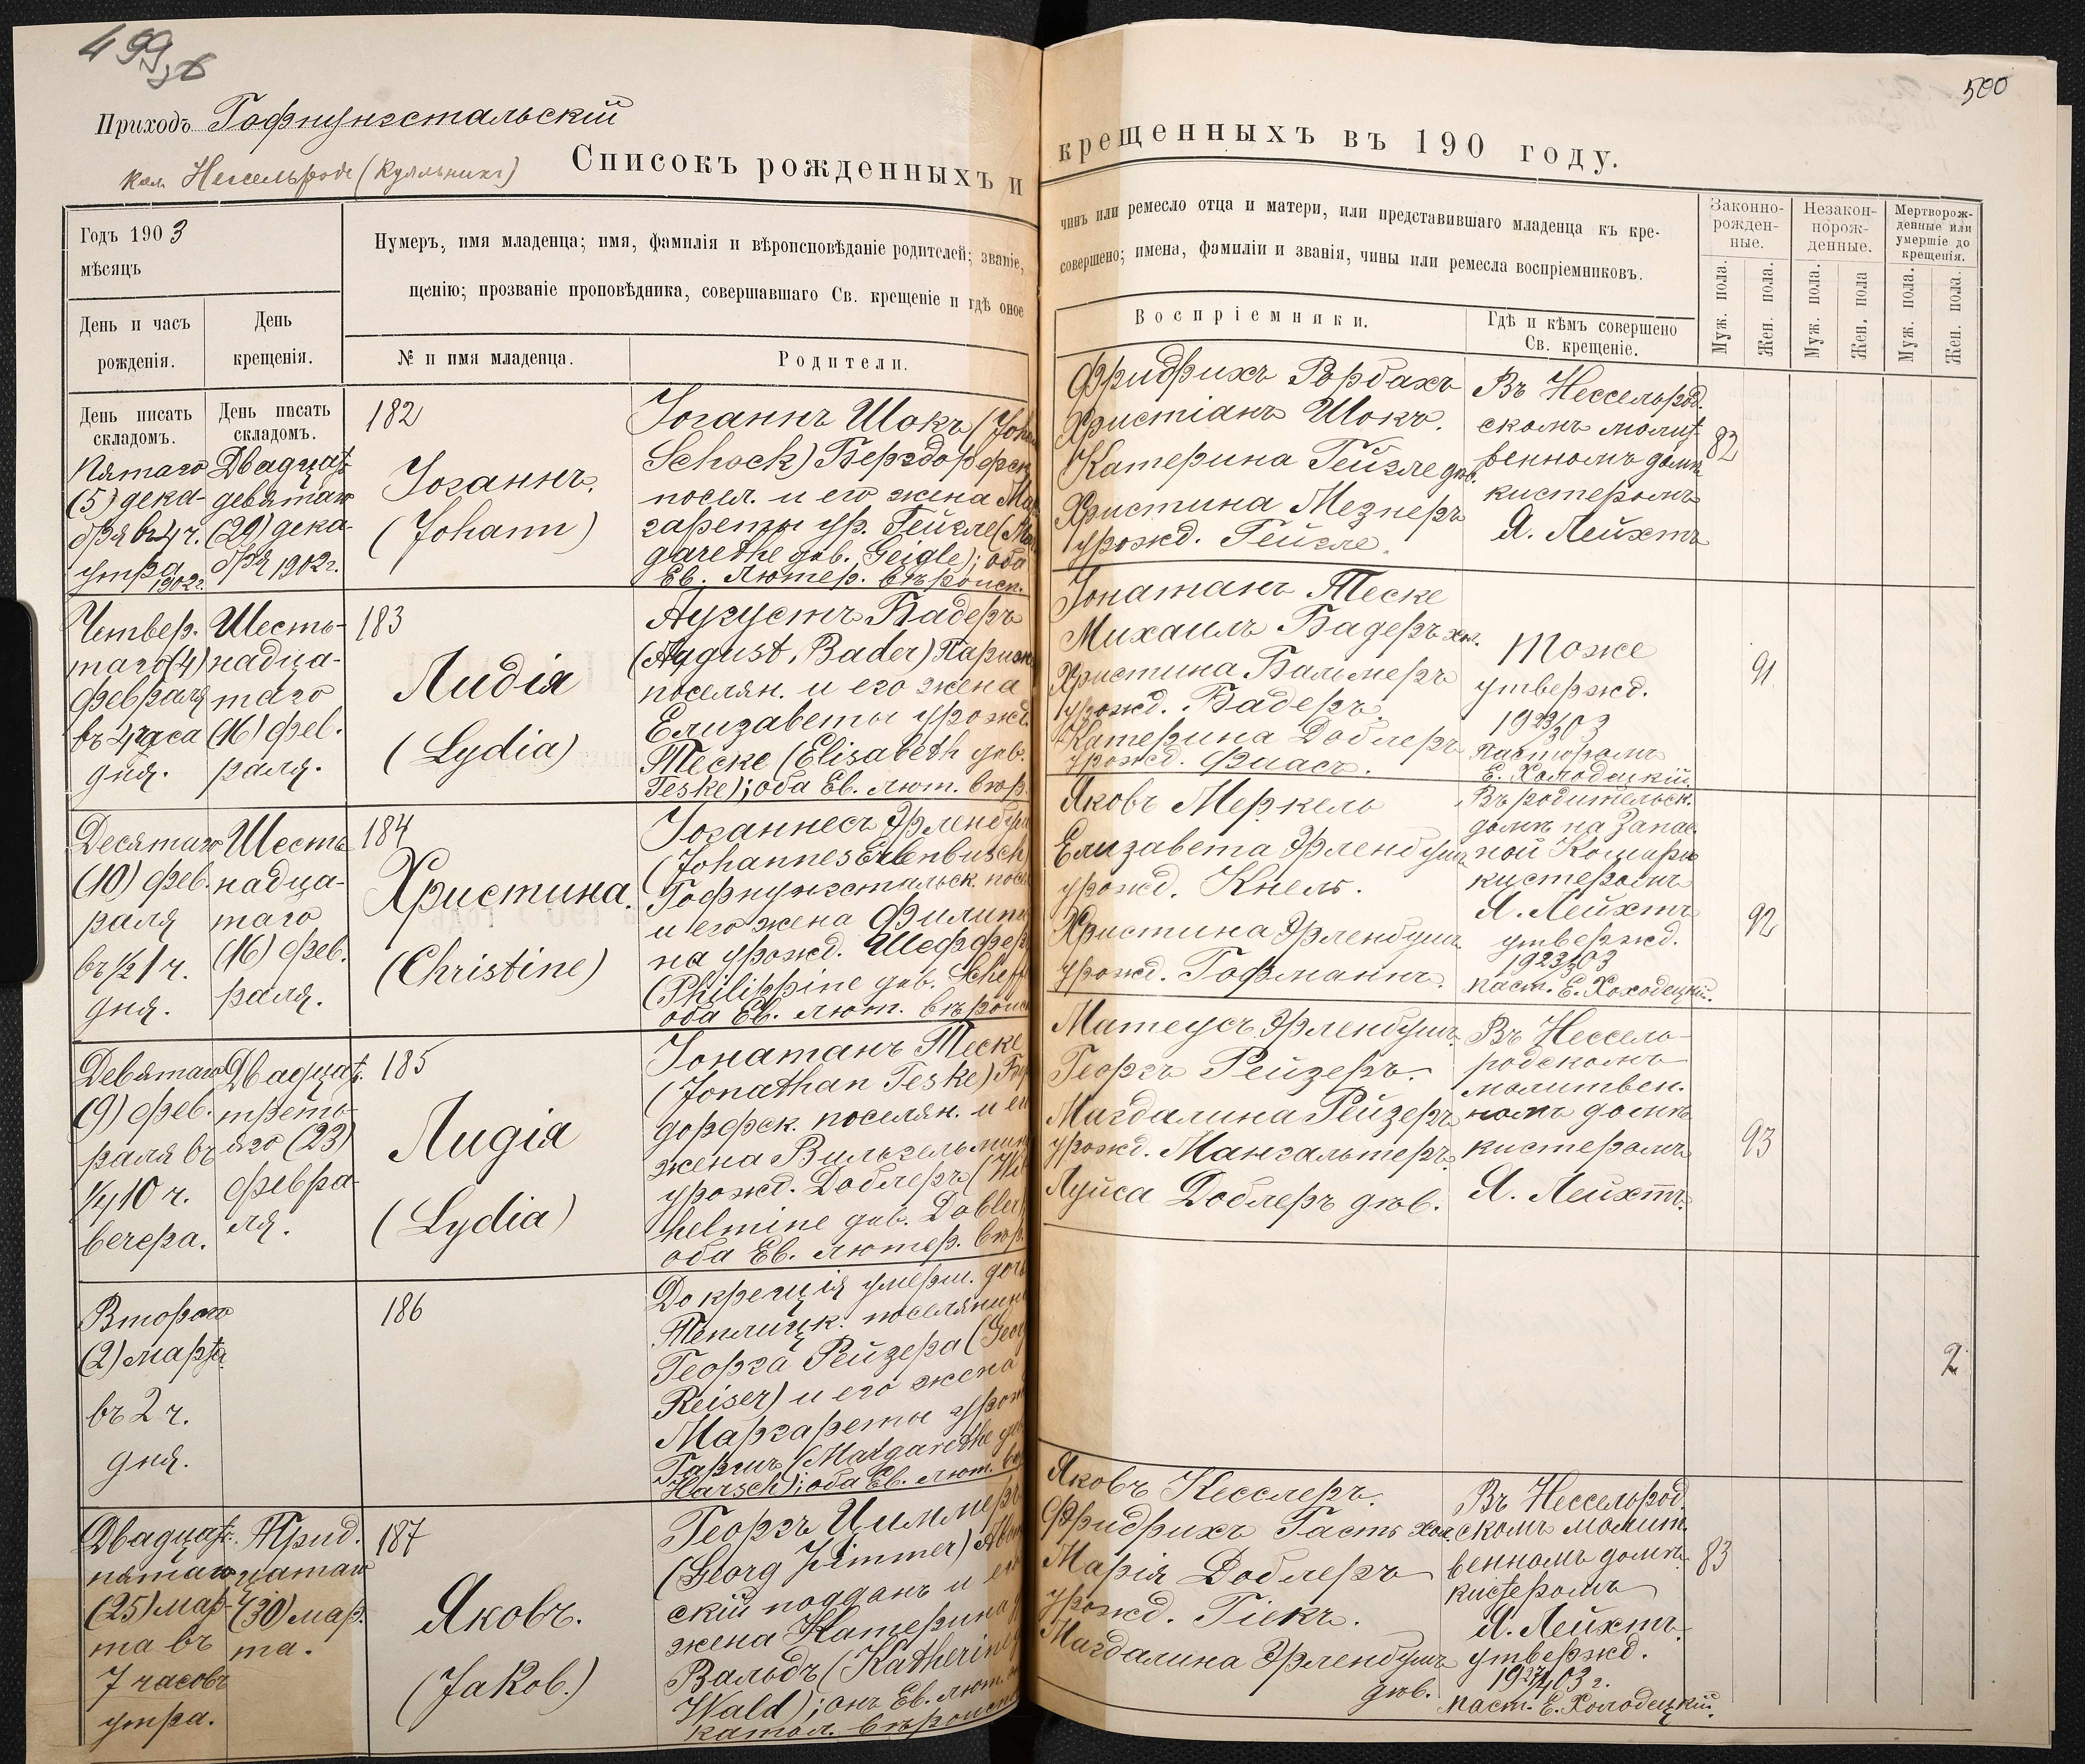 499
500
Приходъ Гофнунгстальскій
Кол. Нессельроде (Куяльникъ)
Списокъ рожденныхъ и
крещенныхъ въ 190 году.
Годъ 1903
мѣсяцъ
Нумеръ, имя младенца; имя, фамилія и вѣроисповѣданіе родителей; званіе,
щенію; прозваніе проповѣдника, совершавшаго Св. крещеніе и гдѣ оное
чинъ или ремесло отца и матери, или представившаго младенца къ кре-
совершено; имена, фамиліи и званія, чины или ремесла воспріемниковъ.
День и часъ
рожденія.
День
крещенія.
№ и имя младенца.
Родители.
Воспріемники.
Гдѣ и кѣмъ совершено
Св. крещеніе.
Законно-
рожден-
ные.
Незакон-
норож-
денные.
Мертворож-
денные или
умершіе до
крещенія.
Муж. пола.
Жен. пола.
Муж. пола.
Жен. пола
Муж. пола.
Жен. пола.
День писать
складомъ.
Пятаго
(5) дека-
бря въ 4 ч.
утра
1902 г.
День писать
складомъ.
Двадцат.
девятаго
(29) дека-
бря 1902 г.
182
Іоганнъ.
(Johann)
Іоганнъ Шокъ (Joh
Schock) Бергдорфск
посел. и его жена Мар
гареты ур. Гейгле (Mar
garethe geb. Geigle); оба
Ев. Лютер. вѣроисп.
Фридрихъ Рорбахъ
Христіанъ Шокъ.
Катерина Гейгле дѣв.
Христина Мезнеръ
урожд. Гейгле.
Въ Нессельрод.
скомъ молит.
венномъ домѣ
кистеромъ
Я. Лейхтъ
82
Четвер.
таго (4)
февраля
въ 4 часа
дня.
Шесть-
надца-
таго
(16) фев.
раля.
183
Лидія
(Lydia)
Аугустъ Бадеръ
(August Bader) Париж
поселян. и его жена
Елизаветы урожд.
Теске (Elisabeth geb.
Teske); оба Ев. лют. вѣр.
Іонатанъ Теске
Михаилъ Бадеръ хол.
Христина Бальмеръ
урожд. Бадеръ.
Катерина Доблеръ
урожд. Фиасъ.
Тоже
утвержд.
19 23/3 03
пасторомъ
Е. Холодецкій.
91
Десятаго
(10) фев.
раля
въ ½ 1 ч.
дня.
Шесть
надца-
таго
(16) фев.
раля.
184
Христина.
(Christine)
Іоганнесъ Эрленбуш
(Johannes Erlenbusch)
Гофнунгстальск. посел
и его жена Филипп
на урожд. Шеффер
(Philippine geb. Scheff
оба Ев. лют. вѣроисп
Яковъ Меркель
Елизавета Эрленбушъ
урожд. Кнель.
Христина Эрленбушъ
урожд. Гофманнъ.
Въ родительск.
домѣ на Запас.
ной Кошарѣ
кистеромъ
Я. Лейхтъ
утвержд.
19 23/3 03
паст. Е. Холодецкій.
92
Девятаго
(9) фев.
раля въ
¼ 10 ч.
вечера.
Двадцат.
третья-
яго (23)
февра-
ля.
185
Лидія
(Lydia)
Іонатанъ Теске
(Jonathan Teske) Бер
дорфск. поселян. и ег
жена Вильгельмин
урожд. Доблеръ (Wil
helmine geb. Dobler)
оба Ев. лютер. вѣр.
Матеусъ Эрленбушъ.
Георгъ Рейзеръ.
Магдалина Рейзеръ
урожд. Мангальтеръ.
Луйса Доблеръ дѣв.
Въ Нессель-
родскомъ
молитвен.
номъ домѣ
кистеромъ
Я. Лейхтъ.
93
Второго
(2) марта
въ 2 ч.
дня.
186
До крещія умерш. дочь
Теплицк. поселянина
Георга Рейзера (Geor
Reiser) и его жена
Маргареты урож
Гаршъ (Margarethe geb
Harsch); оба Ев. лют. вѣ
2
Двадцат.
пятаго
(25) мар-
та въ
7 часовъ
утра.
Трид.
цатаго
(30) мар.
та.
187
Яковъ.
(Jakob.)
Георгъ Циммеръ
(Georg Zimmer) Авст
скій поддан. и его
жена Катерина
Вальдъ (Katherine
Wald); онъ Ев. лют.
катол. вѣроисп
Яковъ Кесслеръ.
Фридрихъ Гастъ хол.
Марія Доблеръ
урожд. Гіекъ.
Магдалина Эрленбушъ
дѣв.
Въ Нессельрод.
скомъ молит.
венномъ домѣ
кистеромъ
Я. Лейхтъ.
утвержд.
19 27/4 03 г.
паст. Е. Холодецкій.
83